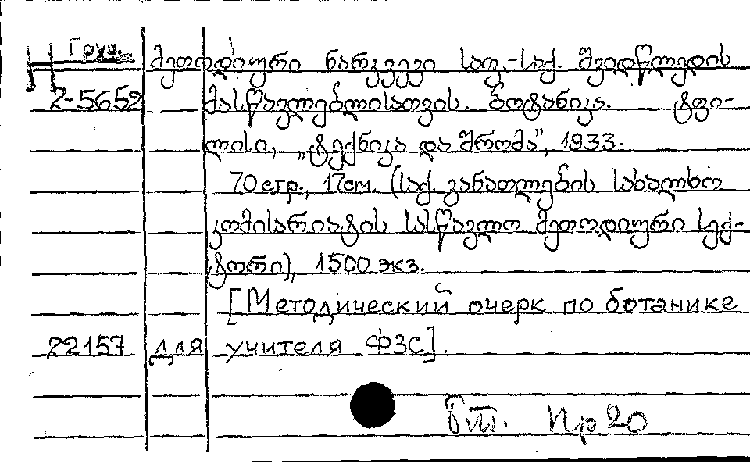 Груз. მეთოდიური ნარკვევი საფ.-საქ. შვიდწლედის
2-5652 მასწავლებლისათვის. ბოტანიკა. ტფი-
ლისი, „ტექნიკა და შრომა“, 1933.
70 стр., 17 см. (საქ. განათლების სახალხო
კომისარიატის სასწავლო მეთოდიური სექ-
ტორი), 1500 экз.
[Методический очерк по ботанике
22157 для учителя ФЗС].
Пр 20